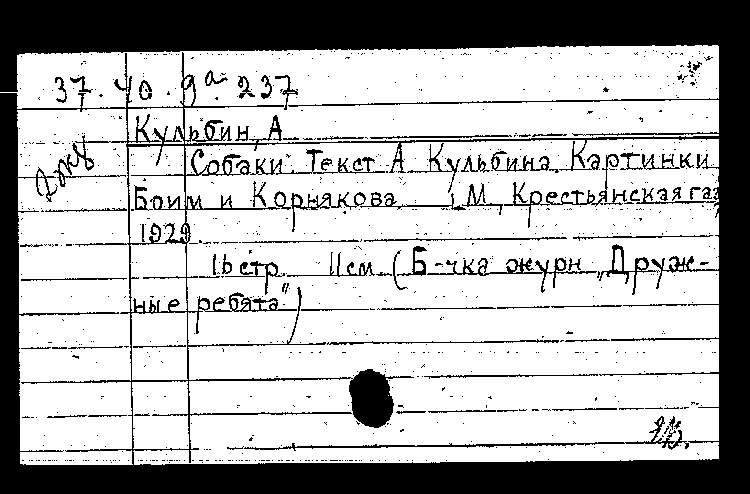 37.40.9а.237
Кульбин, А
Собаки. Текст А Кульбина. Картинки
Боим и Корнякова М, Крестьянская газ
1929.
16 стр 11 см (Б-чка журн „Друж-
ные ребята")